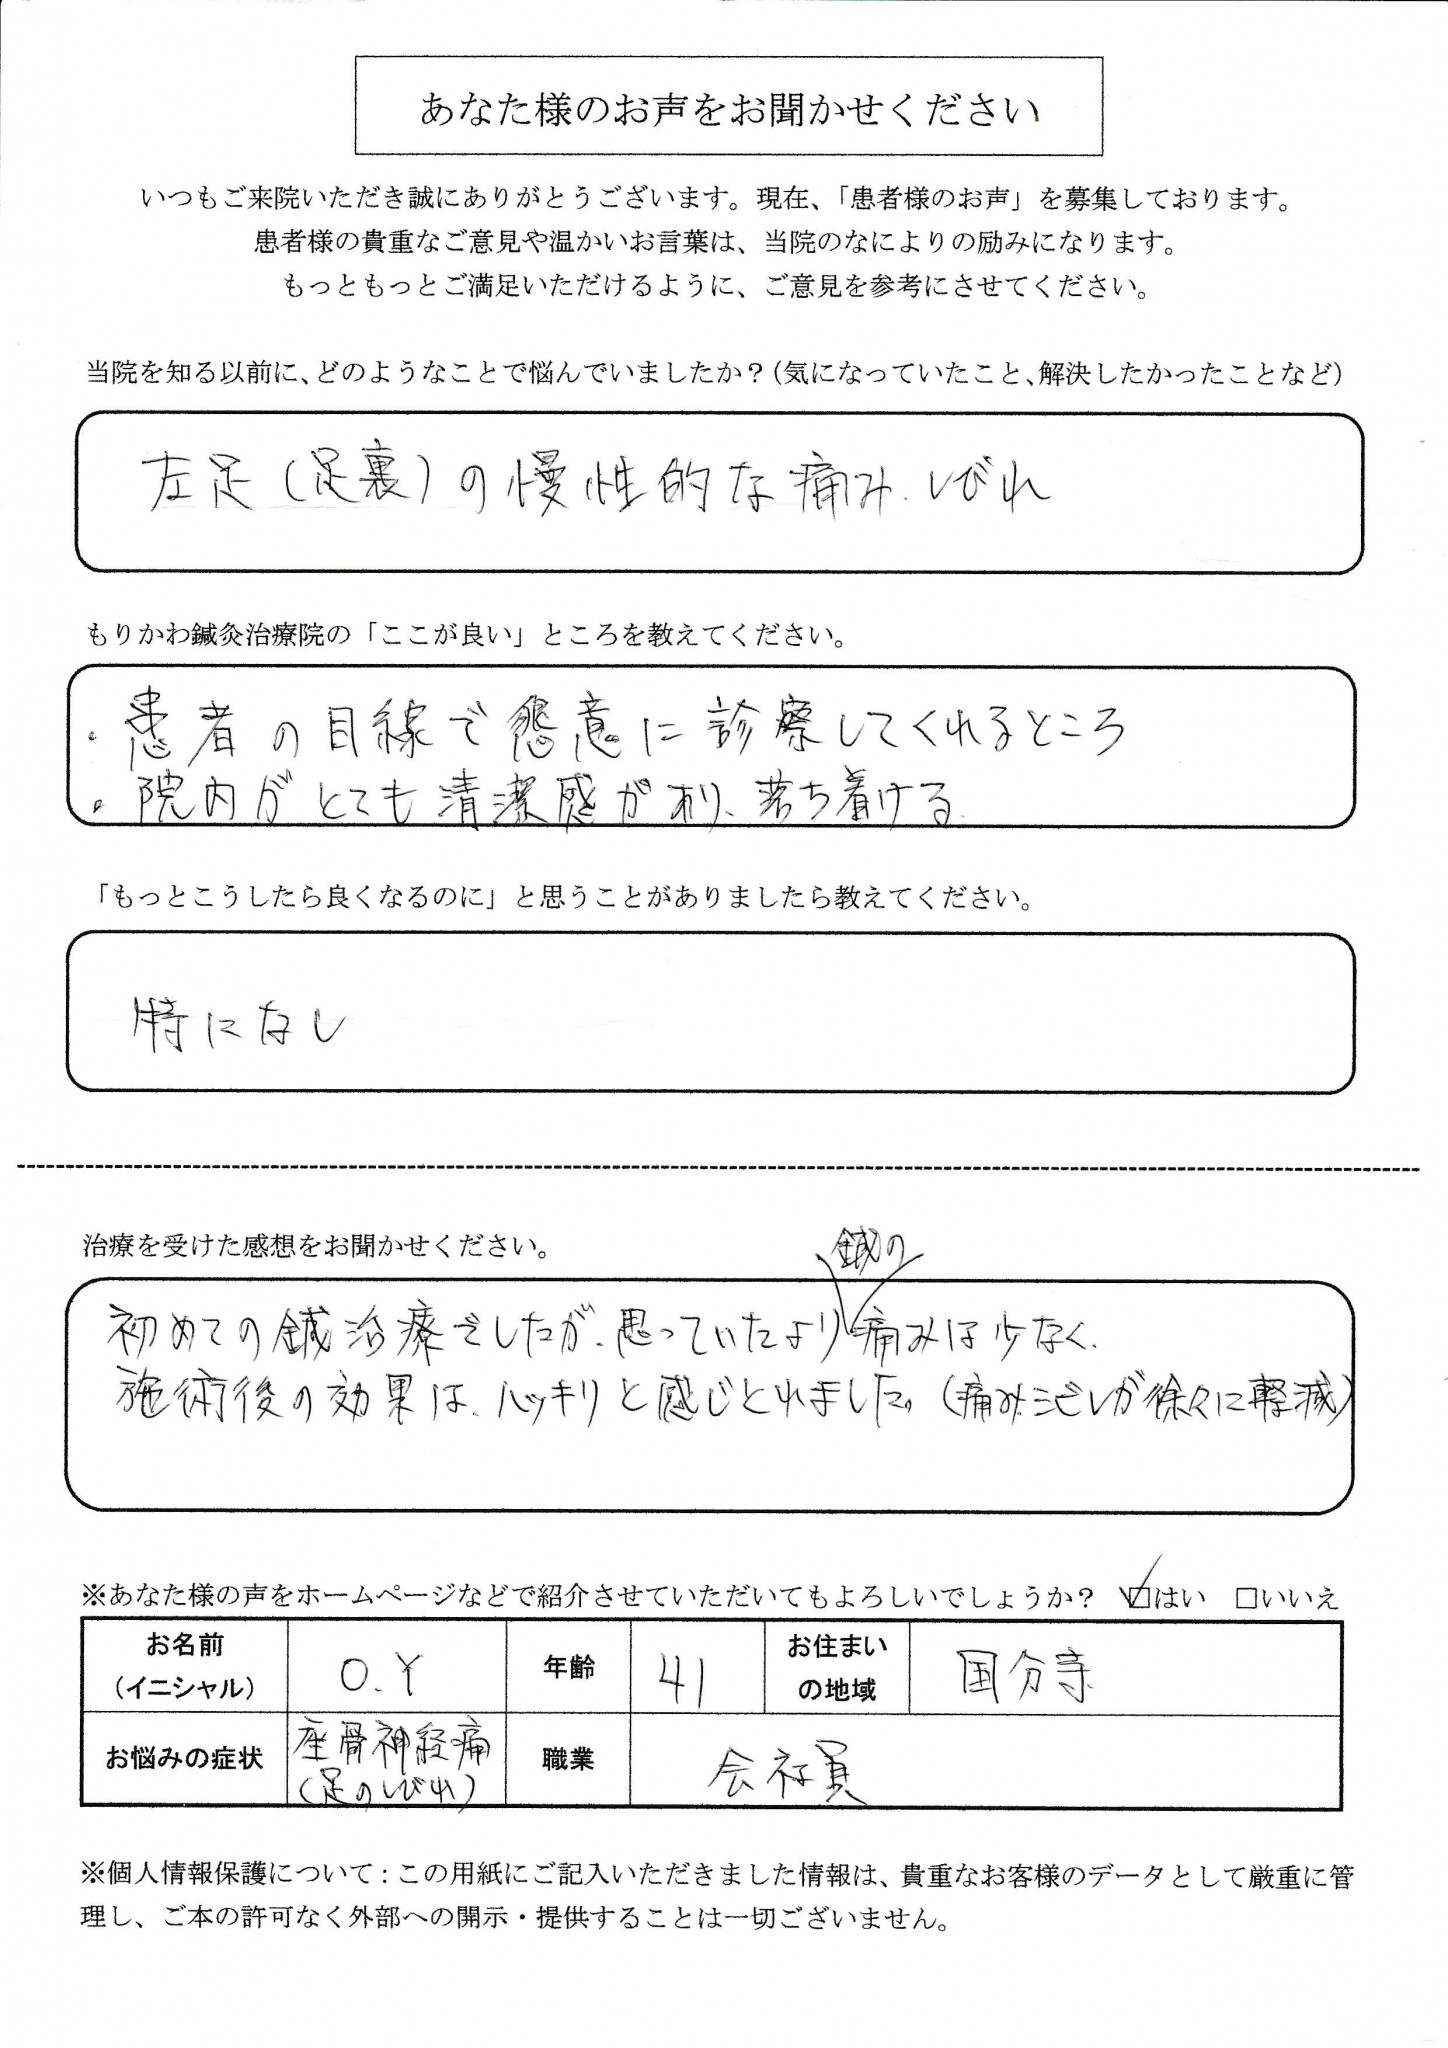 あなた様のお声をお聞かせください
いつもご来院いただき誠にありがとうございます。現在、「患者様のお声」を募集しております。
患者様の貴重なご意見や温かいお言葉は、当院のなによりの励みになります。
もっともっとご満足いただけるように、ご意見を参考にさせてください。
当院を知る以前に、どのようなことで悩んでいましたか？（気になっていたこと、解決したかったことなど）
左足（足裏）の慢性的な痛み、しびれ
もりかわ鍼灸治療院の「ここが良い」ところを教えてください。
・患者の目線で懇意に診察してくれるところ
・院内がとても清潔感があり、落ち着ける。
「もっとこうしたら良くなるのに」と思うことがありましたら教えてください。
特になし
治療を受けた感想をお聞かせください。
初めての鍼治療でしたが、思っていたより鍼の痛みは少なく、
施術後の効果は、ハッキリと感じとれました。（痛み、シビレが徐々に軽減）
※あなた様の声をホームページなどで紹介させていただいてもよろしいでしょうか？ ☑はい □いいえ
お名前（イニシャル） O.Y 年齢 41 お住まいの地域 国分寺
お悩みの症状 座骨神経痛（足のしびれ） 職業 会社員
※個人情報保護について：この用紙にご記入いただきました情報は、貴重なお客様のデータとして厳重に管
理し、ご本の許可なく外部への開示・提供することは一切ございません。